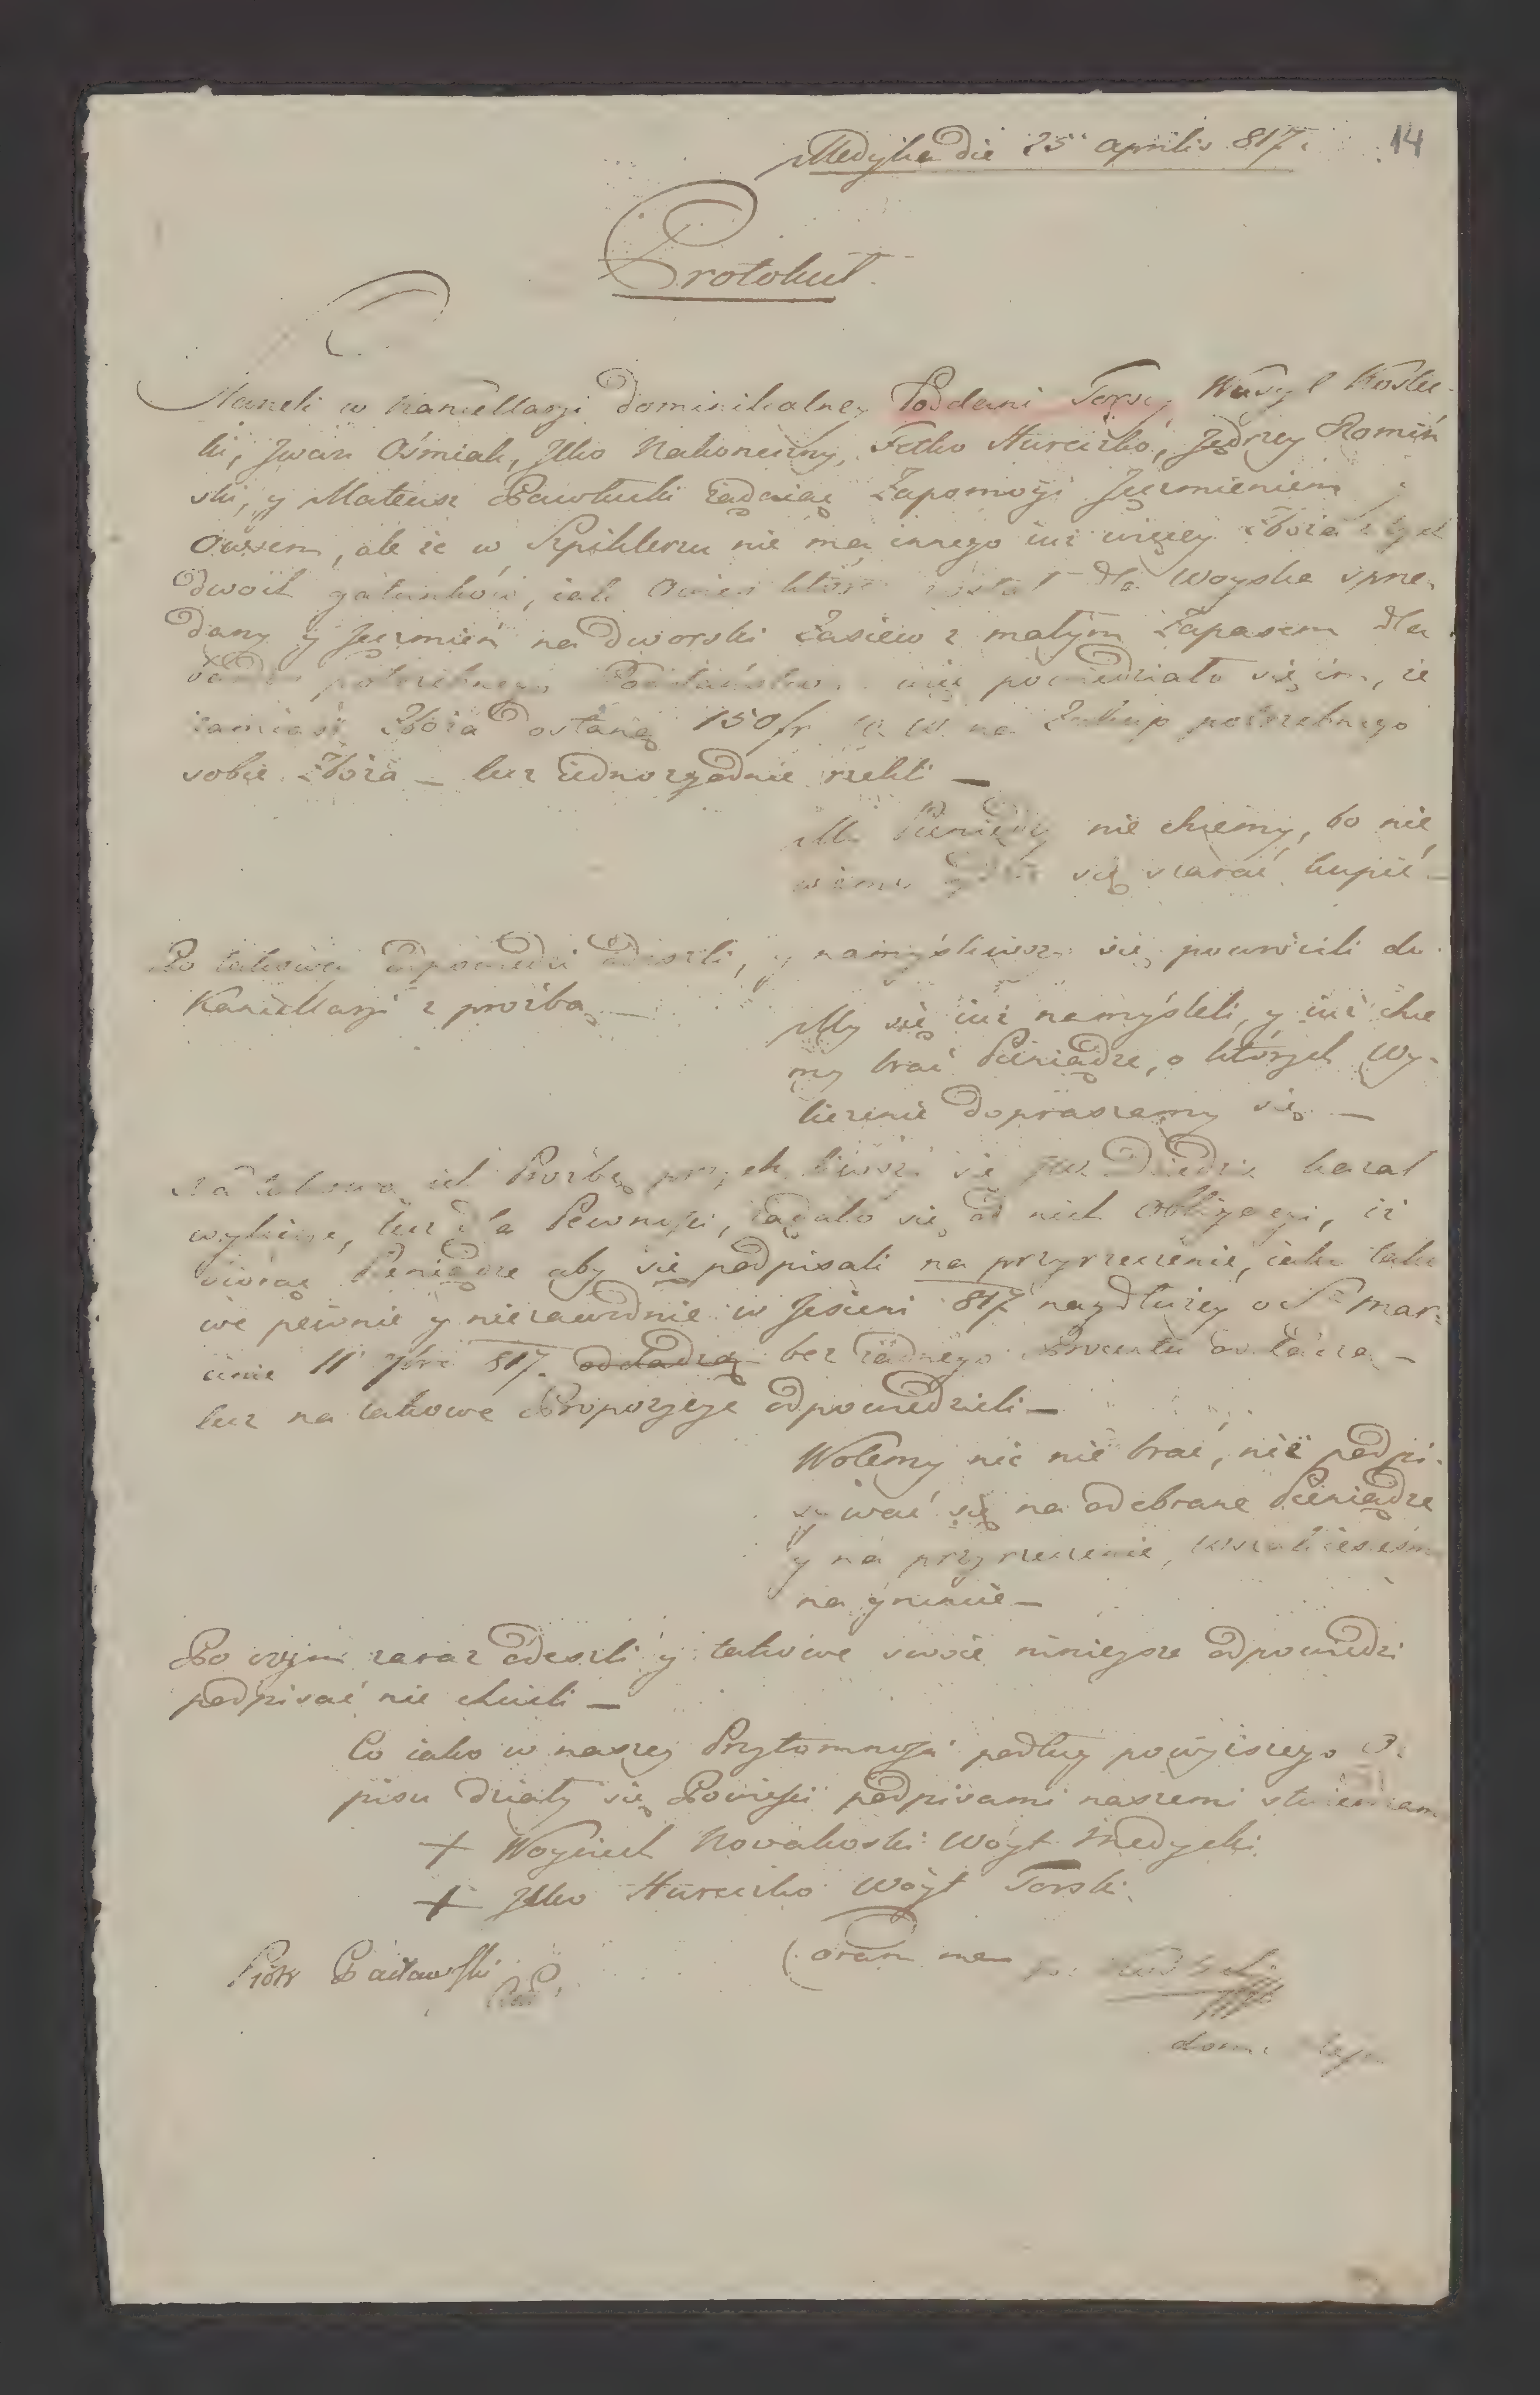 Medyka die 25 aprilis 817.
14
Protokuł.
Staneli w Kancellarji Dominikalney Poddani Torscy Wasyl Kostec-
ki, Jwan Ośmiak, Jlko Nakoneczny, Fetko Hureczko, Jędrzey Romiń
ski, y Mateusz Pawłucki żądaiąc Zapomogi Jęczmieniem y
Owsem, ale że w Szpiklerzu nie ma innego iuż więcey Zboża z tych
dwoch gatunków, iak Owies który został dla Woyska sprze-
dany y Jęczmień na dworski Zasiew z małym Zapasem dla
potrzebnego Poddaństwa powiedziało się im, że
zamiast Zboża dostaną 150 fr W. W. na Zakup potrzebnego
sobie Zboża – lecz iednorządnie rzekli –
My Pieniędzy nie chcemy, bo nie
wiemy gdzie się starać kupić –
Po takowey odpowiedzi odeszli, y namyśliwszy się powrócili do
Kancellarji z prozbą –
My się iuż namyśleli, y iuż chce
my brać Pieniądze, o których Wy-
liczenie dopraszamy się –
Na takową ich Prozbę się JW Dziedzic kazał
wyliczyć, lecz dla Pewności, żądało się od nich Obligacyi, iż
biorąc Pieniądze aby się podpisali na przyrzeczenie, iako tako
we pewnie y niezawodnie w Jesieni 817 naydłużey o S. Mar-
cinie 11 9bri 817. oddadzą bez żadnego Procentu
lecz na takowe Propozycye odpowiedzieli –
Wolemy nic nie brać, niż podpi-
sywać się na odebrane Pieniądze
y na przyrzeczenie,
na gruncie –
Po czym zaraz odeszli y takowe swoie ninieysze odpowiedzi
podpisać nie chcieli –
Co iako w naszey Przytomności podług powyższego O-
pisu działy się Powieści podpisami naszemi stwierdzam
+ Woyciech Nowakoski Wóyt Medycki
+ Jlko Hureczko Wóyt Torski
Coram me
Piotr Pacławski